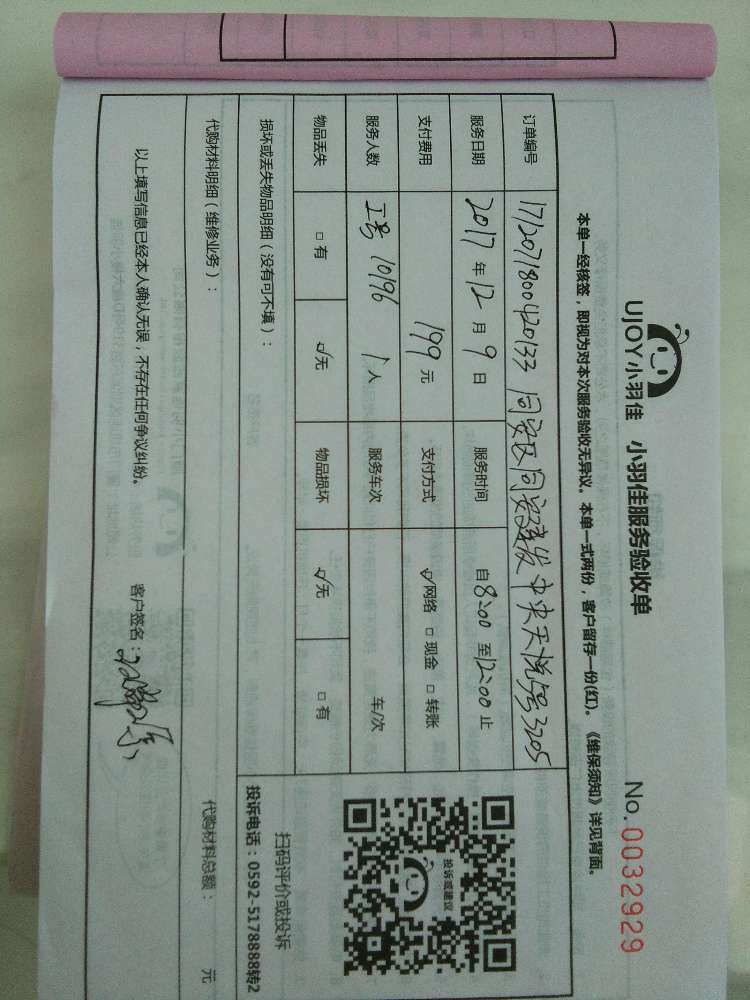 UJOY小羽佳 小羽佳服务验收单 No.0032929
本单一经核签，即视为对本次服务验收无异议。本单一式两份，客户留存一份(红)。《维保须知》详见背面。
订单编号 171207180042 0133 同安区同安建发中央天悦5号3205
服务日期 2017 年 12 月 9 日 服务时间 自 8:00 至 12:00 止
支付费用 199 元 支付方式 ☑网络 □现金 □转账
服务人数 工号 10196 1 人 服务车次 车/次
物品丢失 □有 ☑无 物品损坏 ☑无 □有
损坏或丢失物品明细（没有可不填）：
投诉或建议
扫码评价或投诉
投诉电话：0592-5178888转2
代购材料明细（维修业务）： 代购材料总额： 元
以上填写信息已经本人确认无误，不存在任何争议纠纷。 客户签名：